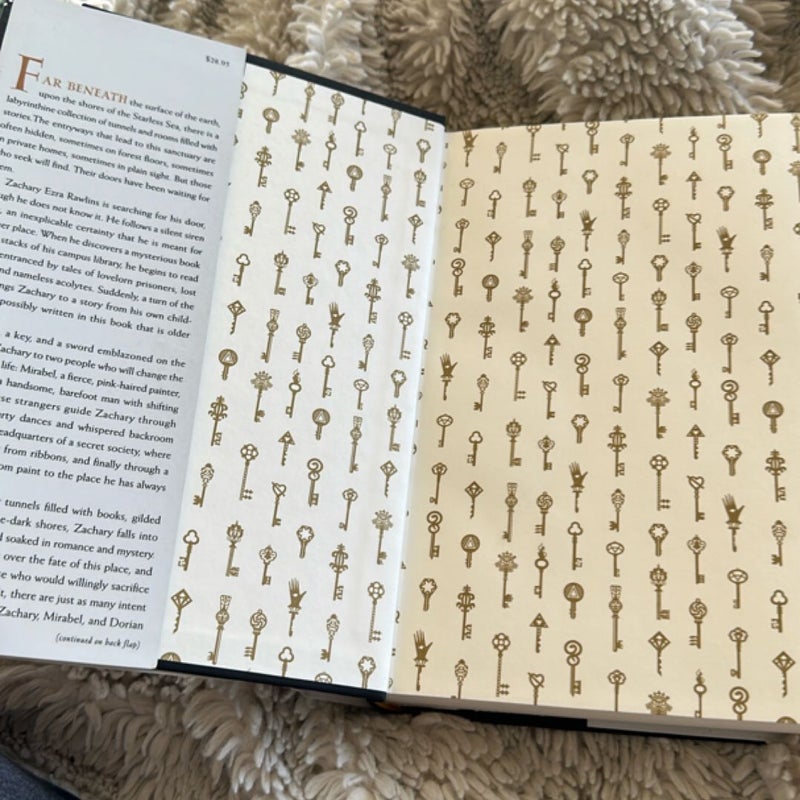 $28.95
FAR BENEATH the surface of the earth,
upon the shores of the Starless Sea, there is a
labyrinthine collection of tunnels and rooms filled with
stories. The entryways that lead to this sanctuary are
often hidden, sometimes on forest floors, sometimes
in private homes, sometimes in plain sight. But those
who seek will find. Their doors have been waiting for
em.
Zachary Ezra Rawlins is searching for his door,
ugh he does not know it. He follows a silent siren
, an inexplicable certainty that he is meant for
her place. When he discovers a mysterious book
stacks of his campus library, he begins to read
entranced by tales of lovelorn prisoners, lost
nd nameless acolytes. Suddenly, a turn of the
ngs Zachary to a story from his own child-
possibly written in this book that is older
, a key, and a sword emblazoned on the
Zachary to two people who will change the
life: Mirabel, a fierce, pink-haired painter,
a handsome, barefoot man with shifting
se strangers guide Zachary through
rty dances and whispered backroom
eadquarters of a secret society, where
from ribbons, and finally through a
om paint to the place he has always
tunnels filled with books, gilded
e-dark shores, Zachary falls into
l soaked in romance and mystery.
over the fate of this place, and
e who would willingly sacrifice
t, there are just as many intent
Zachary, Mirabel, and Dorian
(continued on back flap)